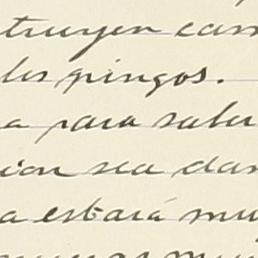 truyen cam
les pingos.
a para saber
ion sea dan
a estará muy